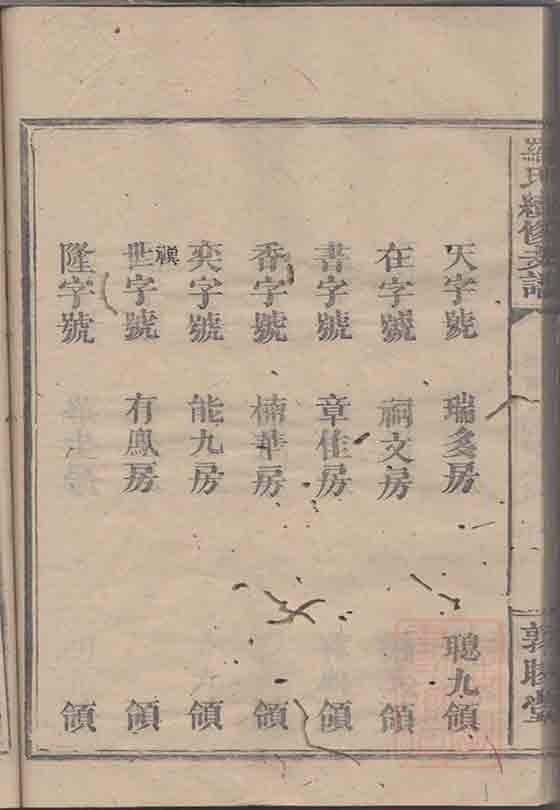 羅氏續修支譜
敦睦堂
天字號 瑞多房 聰九領
在字號 祠文房 領
書字號 章佳房 領
香字號 楠華房 領
奕字號 能九房 領
世字號 有鳳房 領
隆字號 領